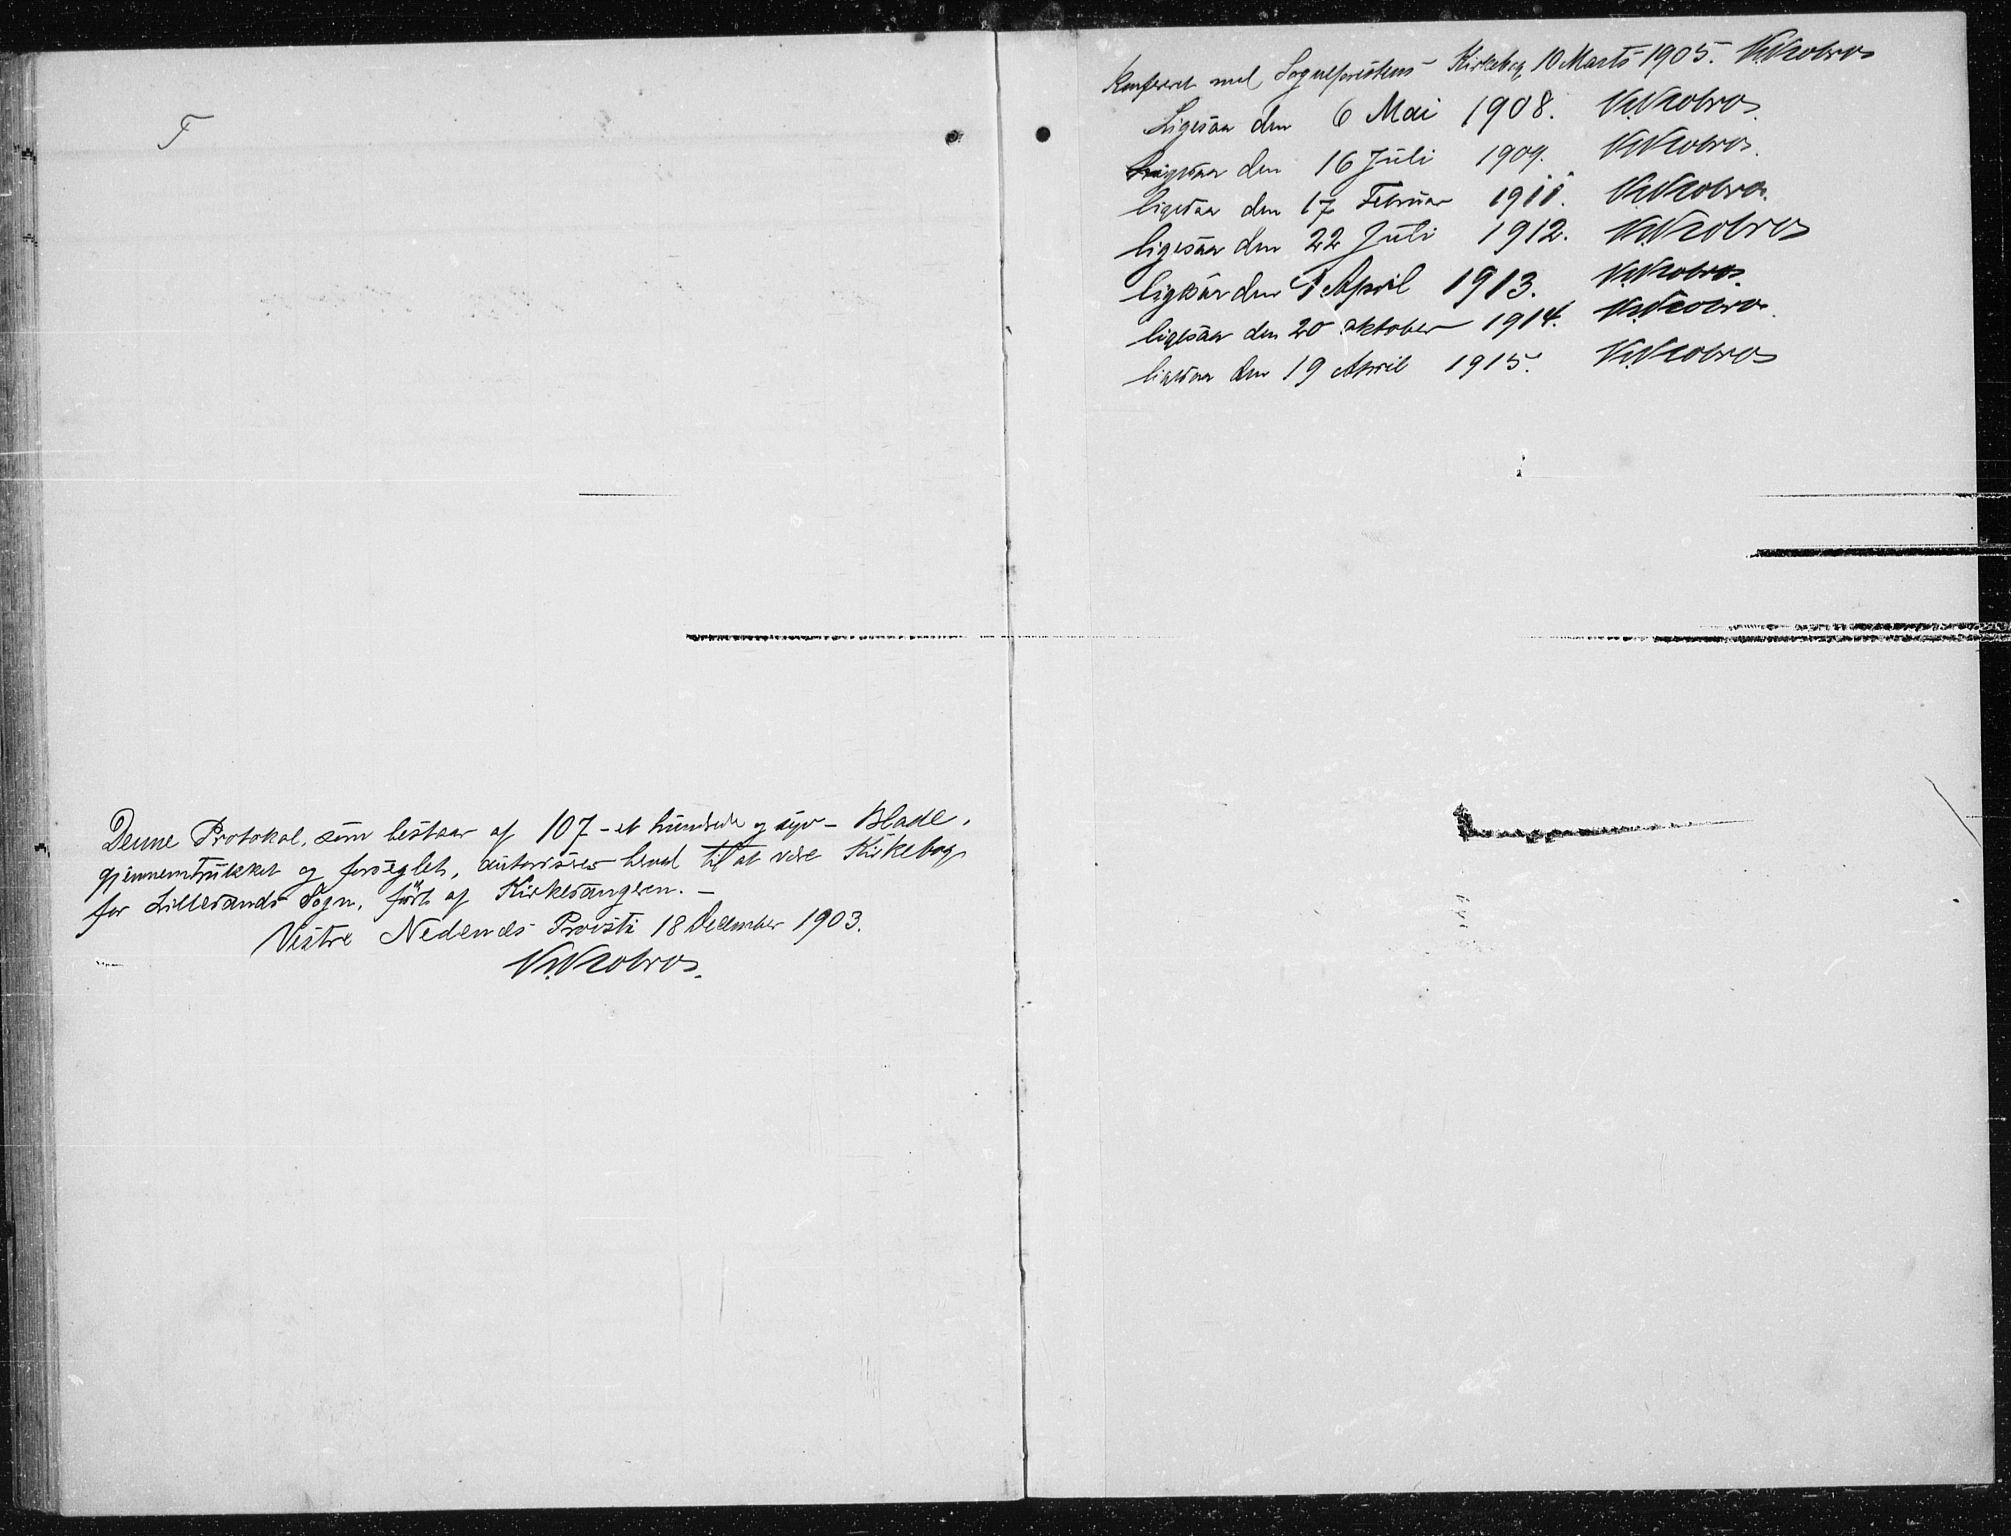 T
Denne Protokol, som bestaar af 107 - et hundrede og syv - Blade,
gjennemtrukket og forseglet, autoriseres herved til at være Kirkebog
for Lillesands Sogn, ført af Kirkesangeren. -
Vestre Nedenes Provsti 18 December 1903.
Konfereret med Sognepræstens Kirkebog 10 Marts 1905.
Ligesaa den 6 Mai 1908.
Ligesaa den 16 Juli 1909.
ligesaa den 17 Februar 1911.
ligesaa den 22 Juli 1912.
ligesaa den 1 April 1913.
ligesaa den 20 oktober 1914.
ligesaa den 19 April 1915.